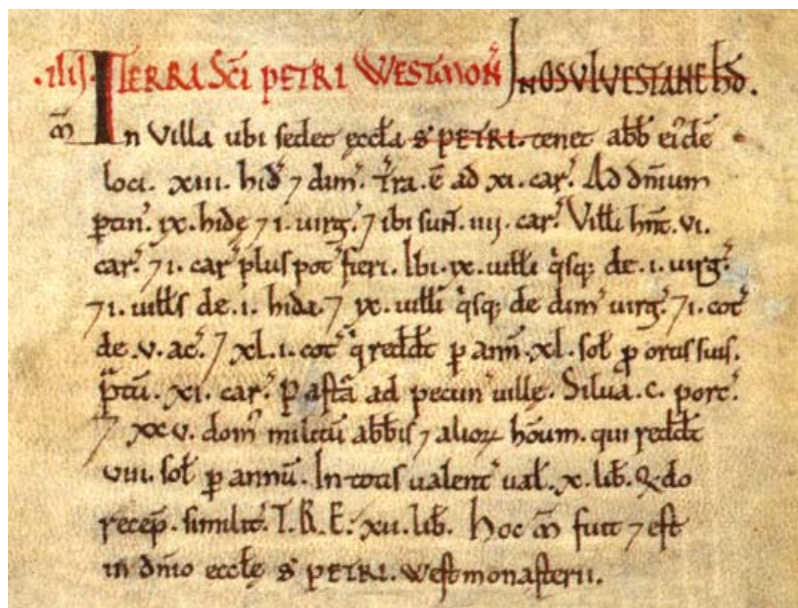 .iiij. TERRA Scı̃ PETRI WESTMOÑ. IN OSULVESTANE hđ.
m̃ In Villa ubi sedet ęccła S̃ PETRI. tenet abb̃ eiꝰdẽ
loci. xiii. hid̃ ⁊ dim̃. T̃ra. ẽ ad xi. car̃. Ad dñium
ꝑtiñ. ix. hidę ⁊ i. uirg̃. ⁊ ibi suñt. iiij. car̃. Villi hñt. vi.
car̃. ⁊ i. car̃ plus pot̃ fieri. Ibi. ix. uilłi q̃sq; de. i. uirg̃.
⁊ i. uilłs de. i. hida. ⁊ ix. uilłi q̃sq; de dim̃ uirg̃. ⁊ i. cot̃
de. v. ac̃. ⁊ xl. i. cot̃ q̃ redd̃t ꝑ ann̄. xl. soł ꝓ ortis suis.
p̃tũ. xi. car̃. Pastã ad pecuñ uillę. Silua. c. porc̃.
⁊ xxv. dom̃ militũ abb̃is ⁊ alioꝝ hõum. qui redd̃t
viii. soł ꝑ annũ. In totis ualent̃ uał. x. lib̃. Q̃do
recep̃. similit̃. T. R. E. xii. lib̃. Hoc m̃ fuit ⁊ est
in dñio ęccłę S̃ PETRI. westmonasterii.